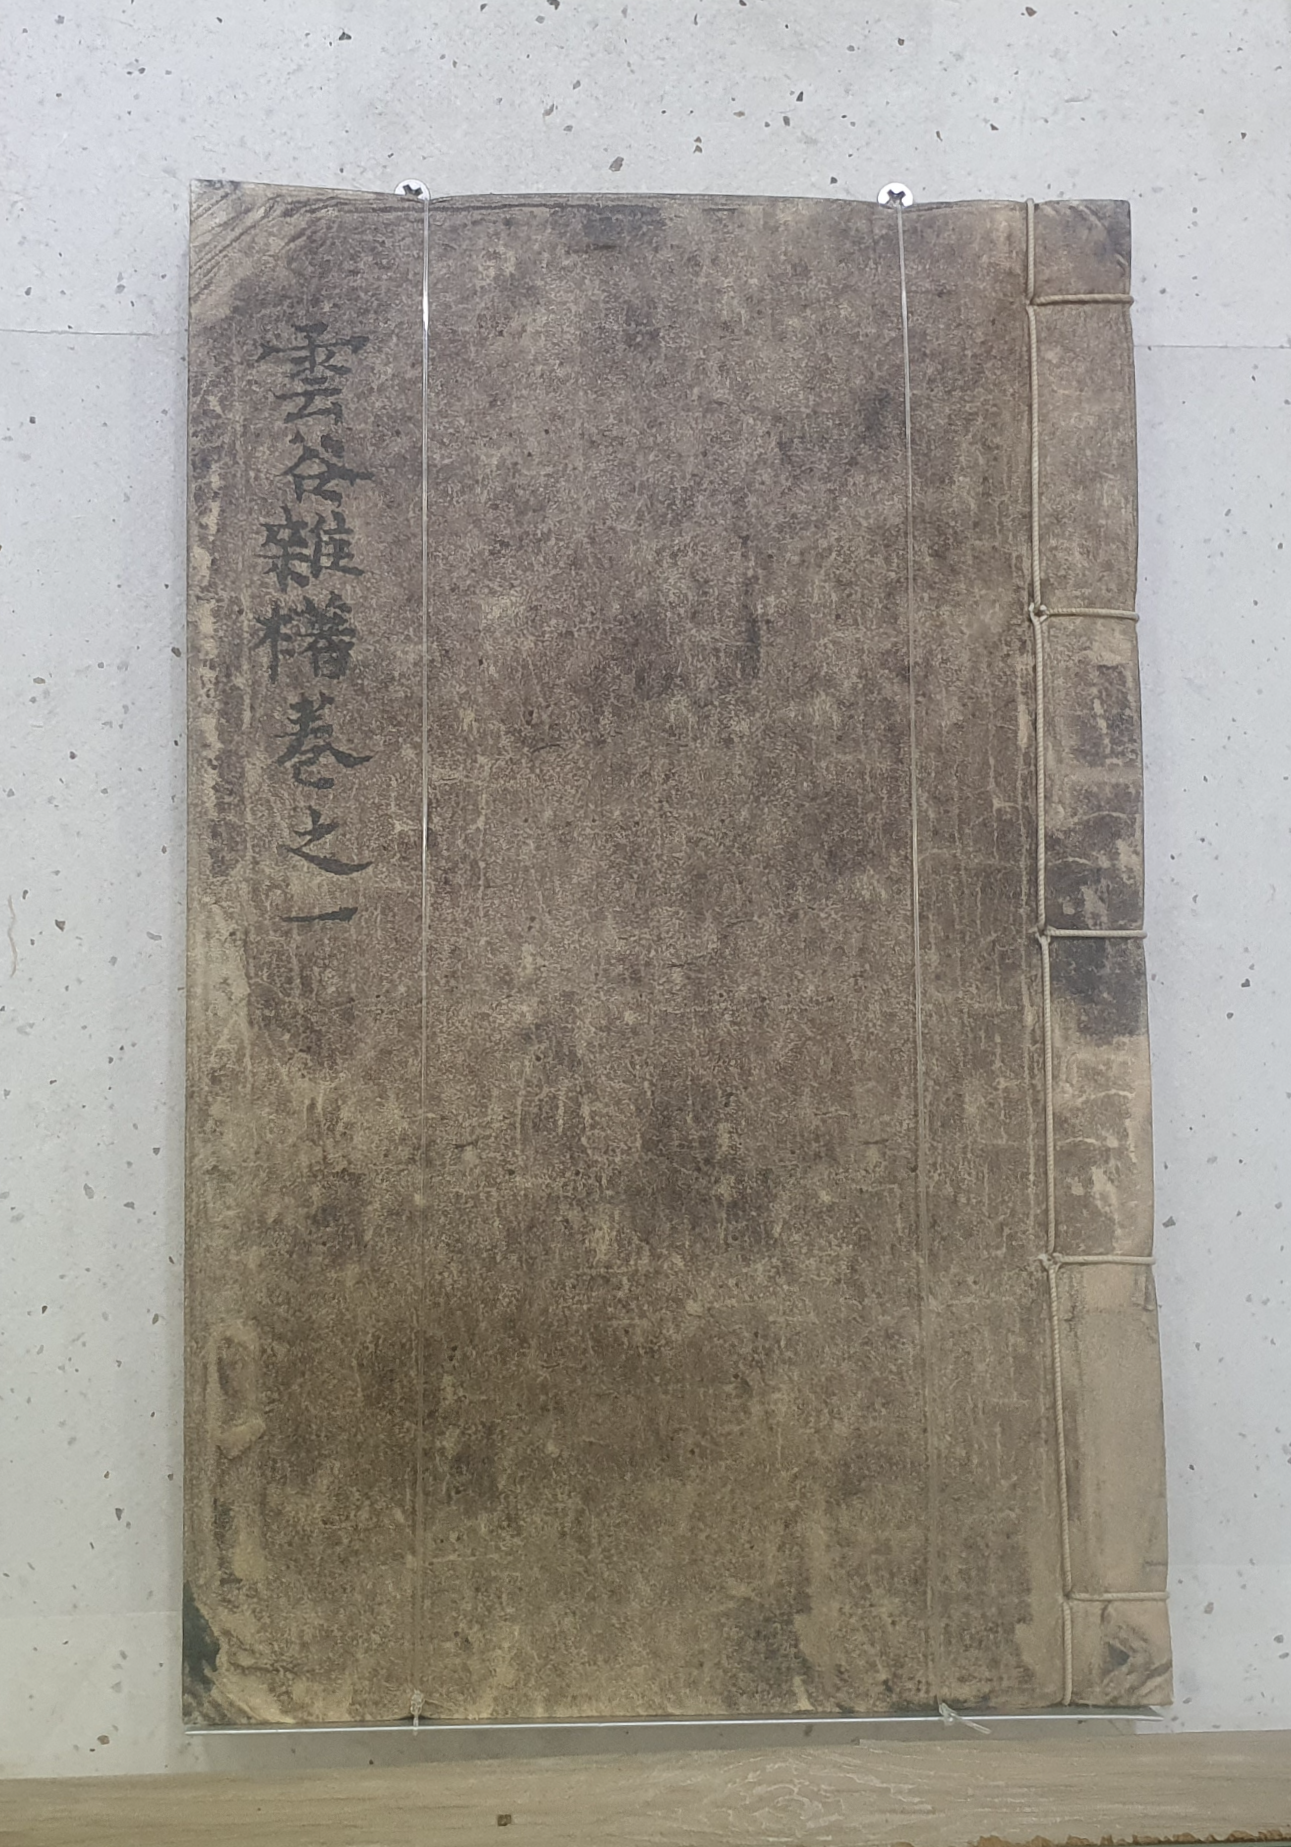 雲谷雜櫡卷之一